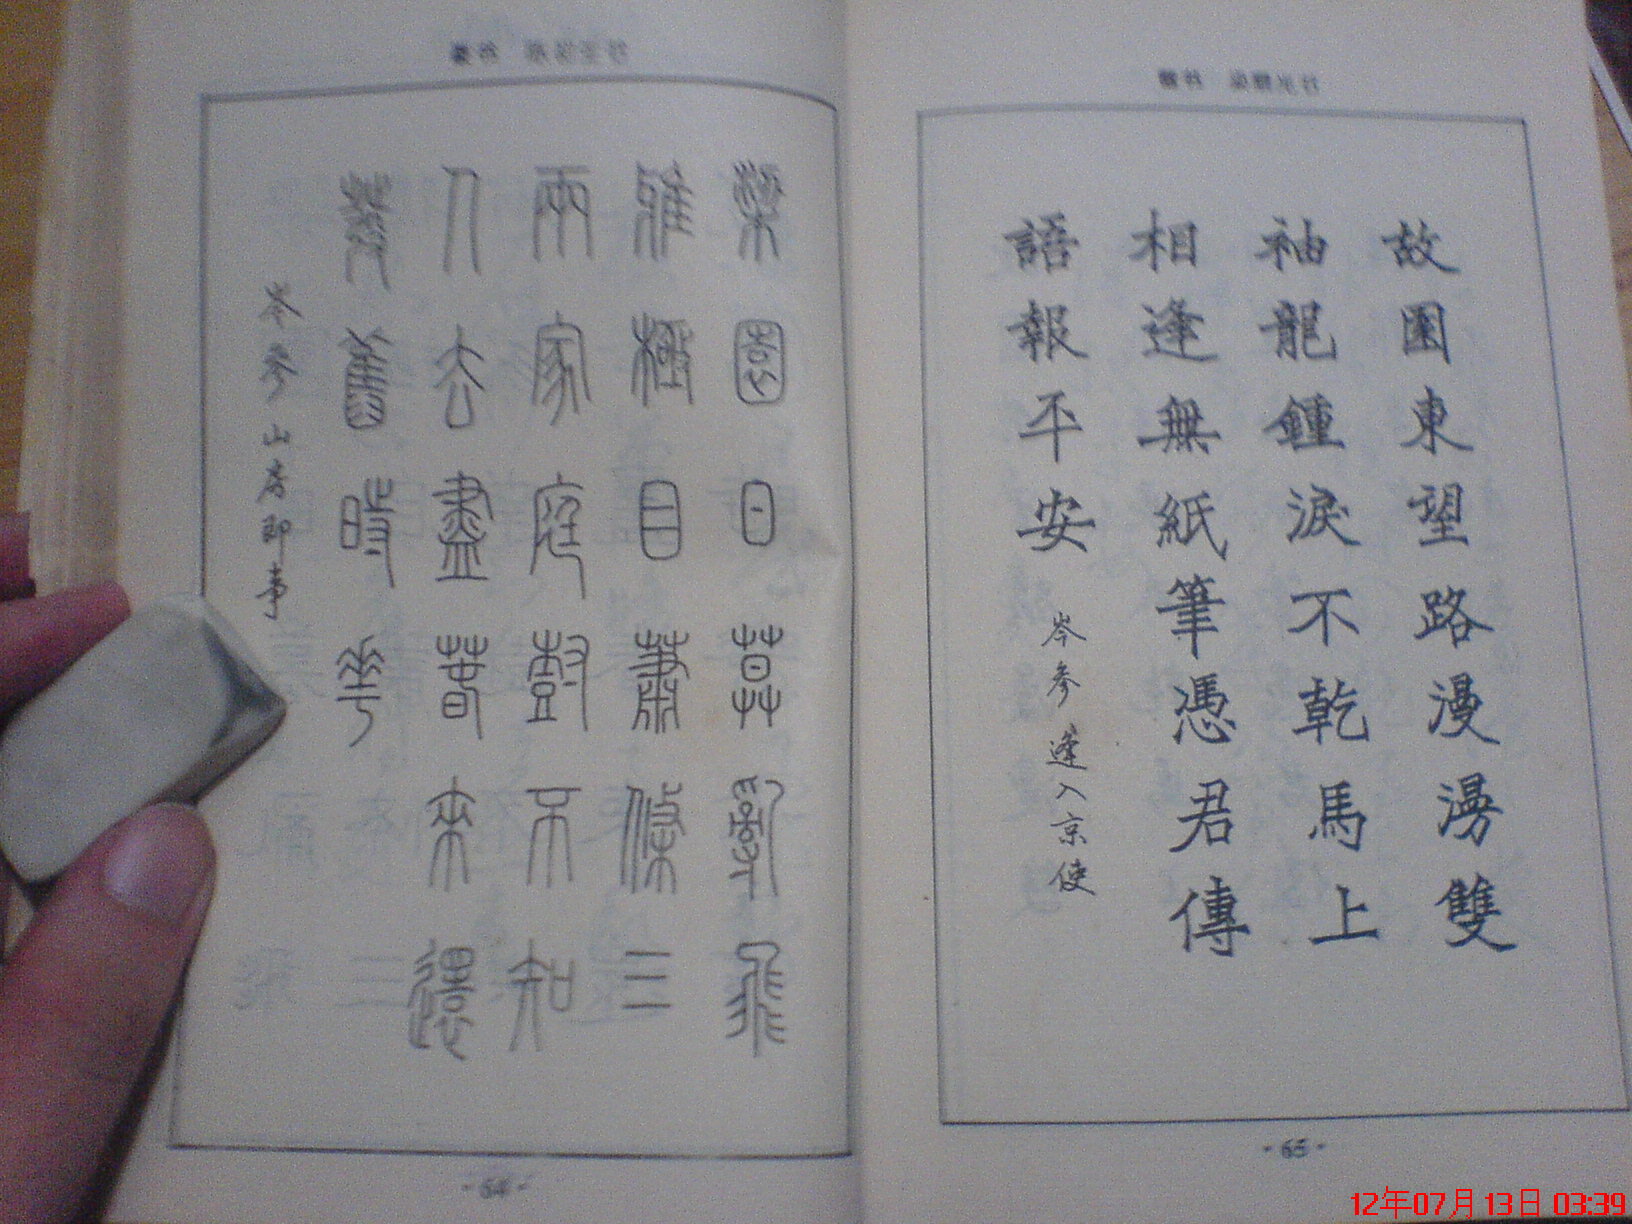 梁園日暮亂飛
雅極目蕭條三
兩家庭樹不知
人去盡春來還
發舊時華
岑參山房即事
-64-
故園東望路漫漫雙
袖龍鍾淚不乾馬上
相逢無紙筆憑君傳
語報平安
岑參逢入京使
-65-
12年07月13日 03:39